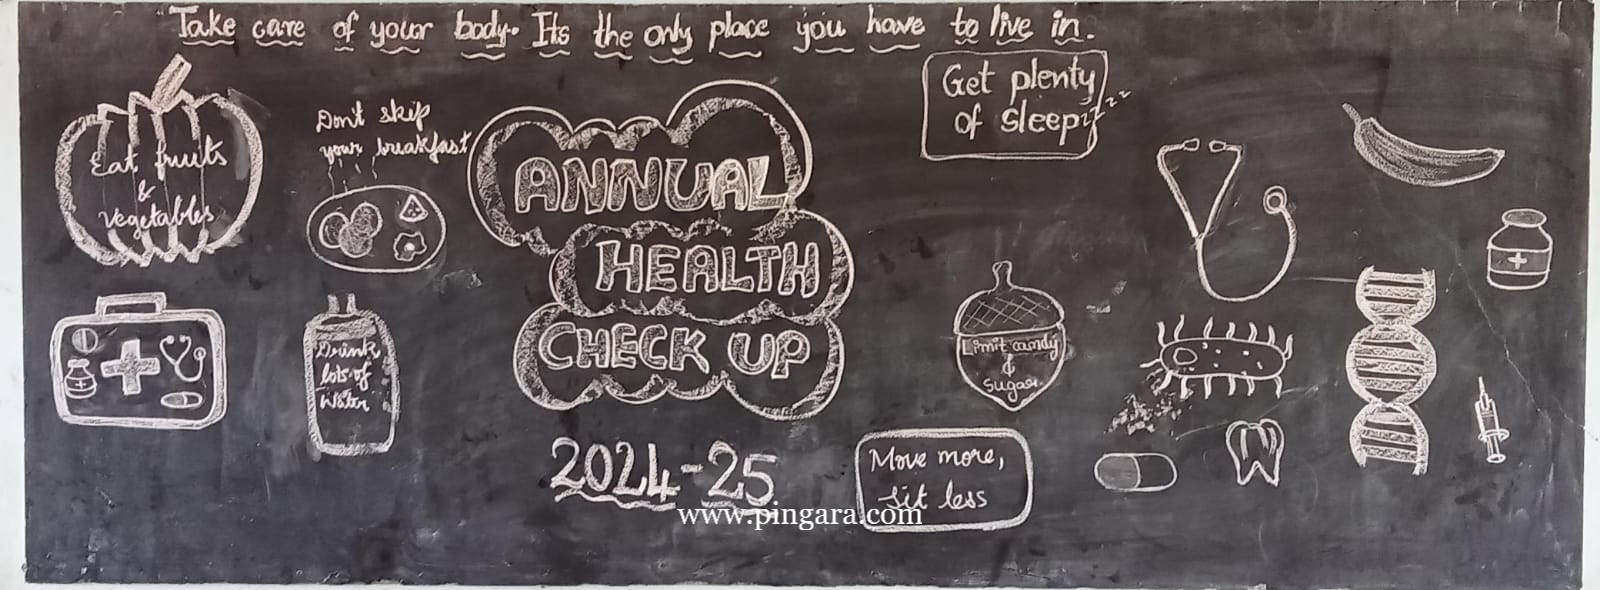 Take care of your body. Its the only place you have to live in.
Get plenty
of sleep
zzz
Don't skip
your breakfast
Eat fruits
&
vegetables
ANNUAL
HEALTH
CHECK UP
Drink
lots of
water
Limit candy
&
sugar.
2024-25
Move more,
sit less
www.pingara.com